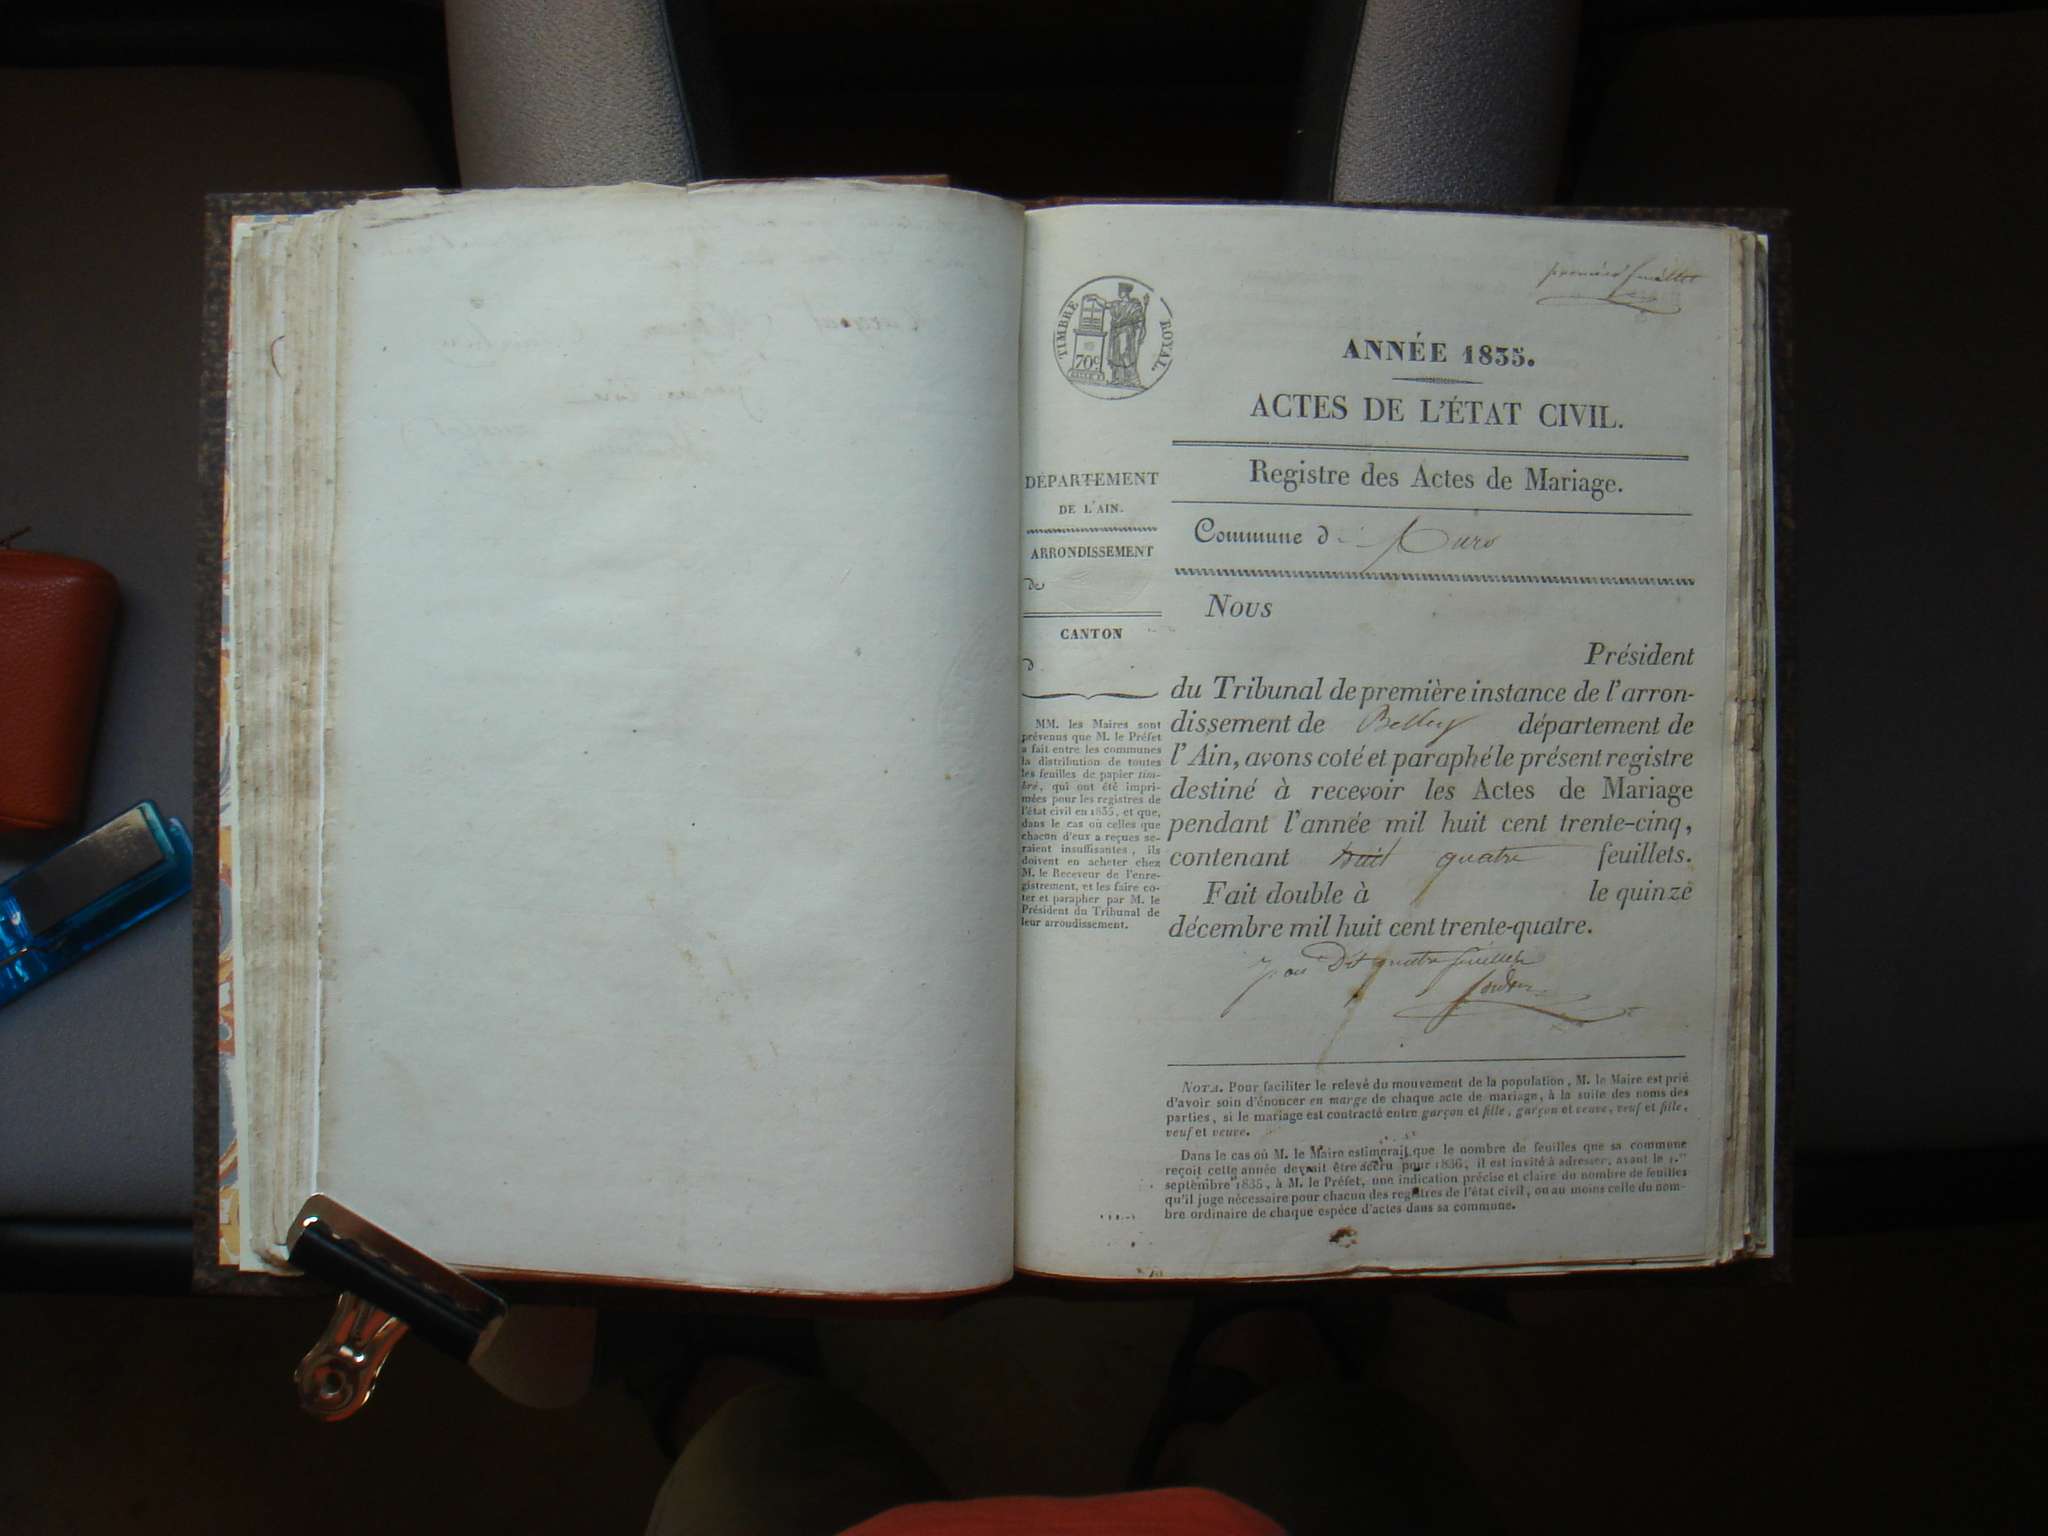 premier feuillet
TIMBRE ROYAL.
70c
ANNÉE 1835.
ACTES DE L'ÉTAT CIVIL.
Registre des Actes de Mariage.
Commune d
DÉPARTEMENT
DE L'AIN.
ARRONDISSEMENT
de
CANTON
d
MM. les Maires sont
prévenus que M. le Préfet
a fait entre les communes
la distribution de toutes
les feuilles de papier tim-
bré, qui ont été impri-
mées pour les registres de
l'état civil en 1835, et que,
dans le cas où celles que
chacun d'eux a reçues se-
raient insuffisantes, ils
doivent en acheter chez
M. le Receveur de l'enre-
gistrement, et les faire co-
ter et parapher par M. le
Président du Tribunal de
leur arrondissement.
Nous
Président
du Tribunal de première instance de l'arron-
dissement de Belley département de
l'Ain, avons coté et paraphé le présent registre
destiné à recevoir les Actes de Mariage
pendant l'année mil huit cent trente-cinq,
contenant huit quatre feuillets.
Fait double à le quinze
décembre mil huit cent trente-quatre.
quatre feuillets
NOTA. Pour faciliter le relevé du mouvement de la population, M. le Maire est prié
d'avoir soin d'énoncer en marge de chaque acte de mariage, à la suite des noms des
parties, si le mariage est contracté entre garçon et fille, garçon et veuve, veuf et fille,
veuf et veuve.
Dans le cas où M. le Maire estimerait que le nombre de feuilles que sa commune
reçoit cette année devrait être accru pour 1836, il est invité à adresser, avant le 1.er
septembre 1835, à M. le Préfet, une indication précise et claire du nombre de feuilles
qu'il juge nécessaire pour chacun des registres de l'état civil, ou au moins celle du nom-
bre ordinaire de chaque espèce d'actes dans sa commune.